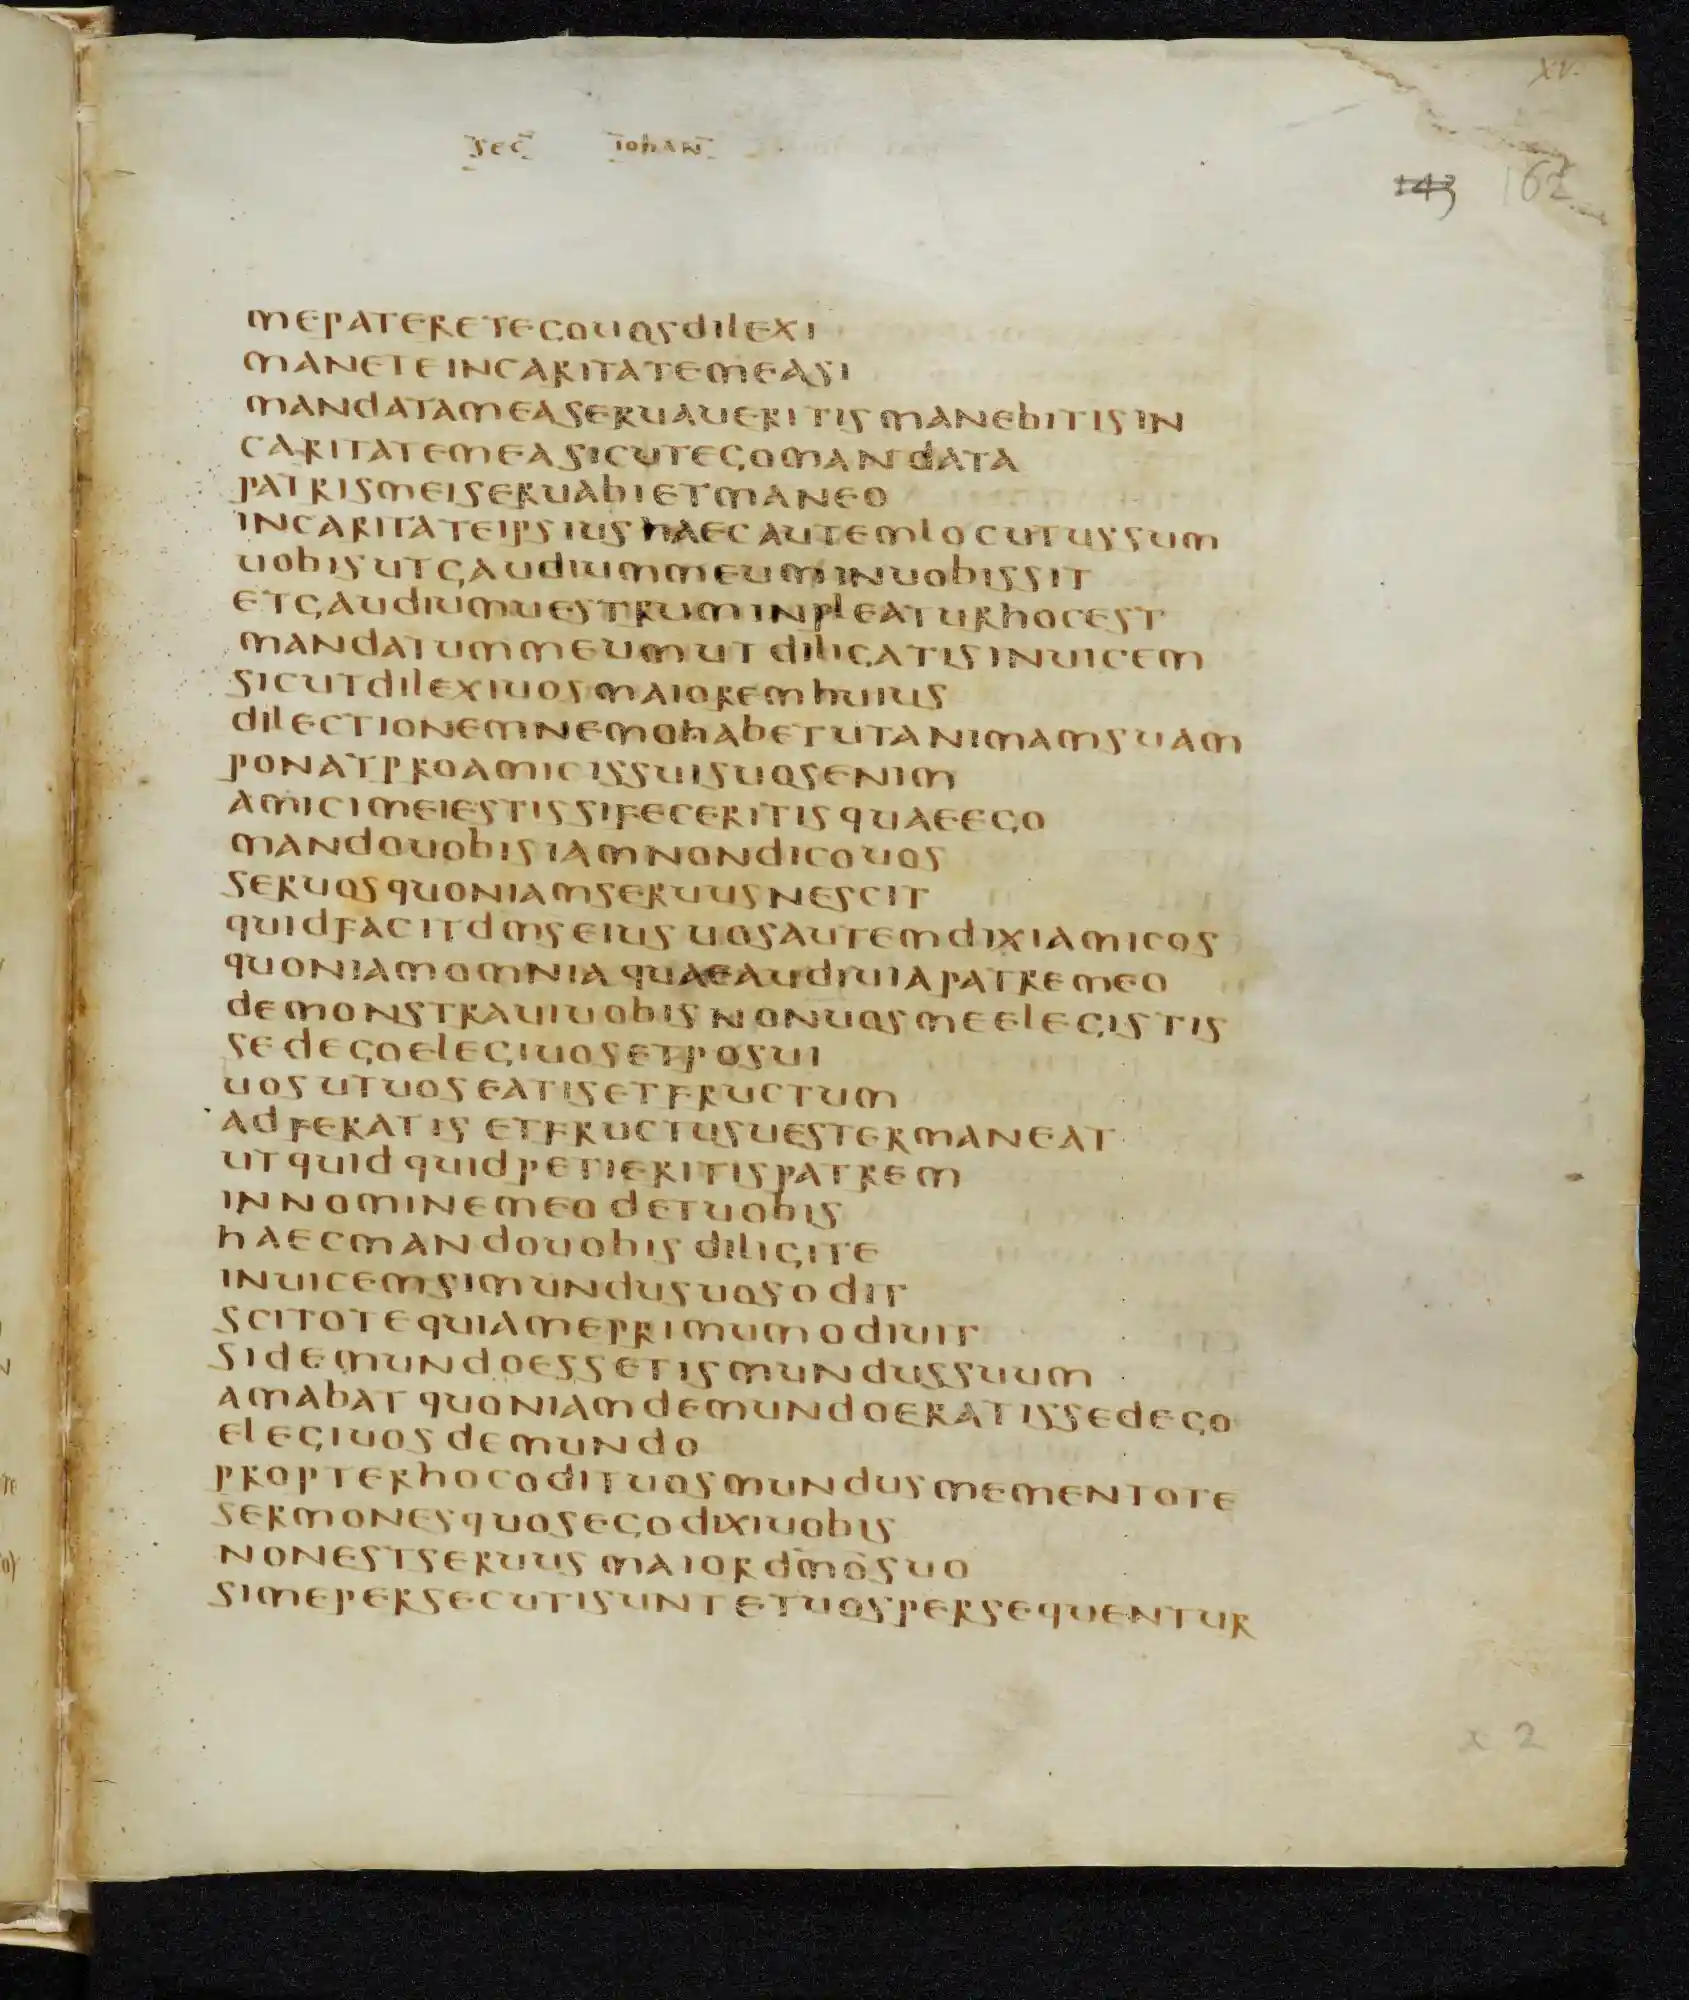 xv.
sec iohan
143 162
mepateretegouosdilexi
maneteincaritatemeasi
mandatameaseruaueritismanebitisin
caritatemeasicutegomandata
patrismeiseruabietmaneo
incaritateipsiushaecautemlocutussum
uobisutgaudiummeuminuobissit
etgaudiumuestruminpleaturhocest
mandatummeumutdiligatisinuicem
sicutdilexiuosmaioremhuius
dilectionemnemohabetutanimamsuam
ponatproamicissuisuosenim
amicimeiestissifeceritisquaeego
mandouobisiamnondicouos
seruosquoniamseruusnescit
quidfacitdmseiusuosautemdixiamicos
quoniamomniaquaeaudiuiapatremeo
demonstrauiuobisnonuosmeelegistis
sedegoelegiuosetposui
uosutuoseatisetfructum
adferatisetfructusuestermaneat
utquidquidpetieritispatrem
innominemeodetuobis
haecmandouobisdiligite
inuicemsimundusuosodit
scitotequiameprimumodiuit
sidemundoessetismundussuum
amabatquoniamdemundoeratissedego
elegiuosdemundo
propterhocodituosmundusmementote
sermonesquosegodixiuobis
nonestseruusmaiordm̄ōsuo
simepersecutisuntetuospersequentur
x 2